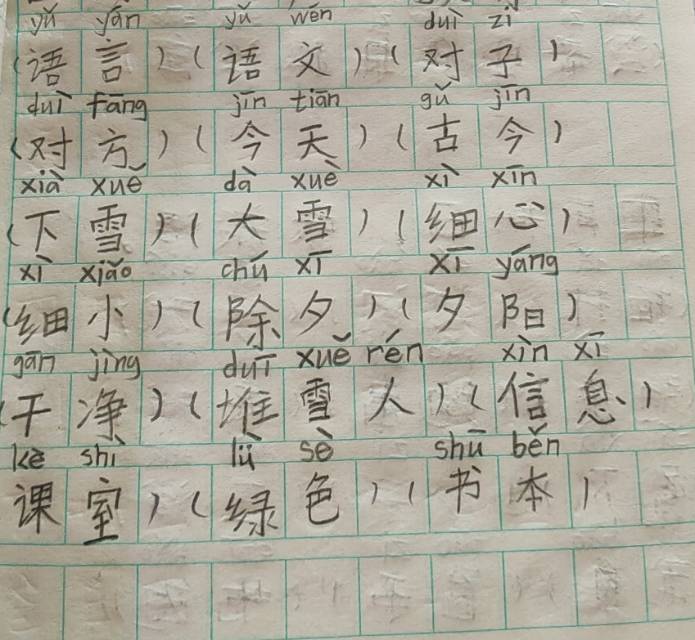 yǔ yán yǔ wén duì zi
(语言)(语文)(对子)
duì fāng jīn tiān gǔ jīn
(对方)(今天)(古今)
xià xuě dà xuě xì xīn
(下雪)(大雪)(细心)
xì xiǎo chú xī xī yáng
(细小)(除夕)(夕阳)
gān jìng duī xuě rén xìn xī
(干净)(堆雪人)(信息)
kè shì lǜ sè shū běn
课室)(绿色)(书本)